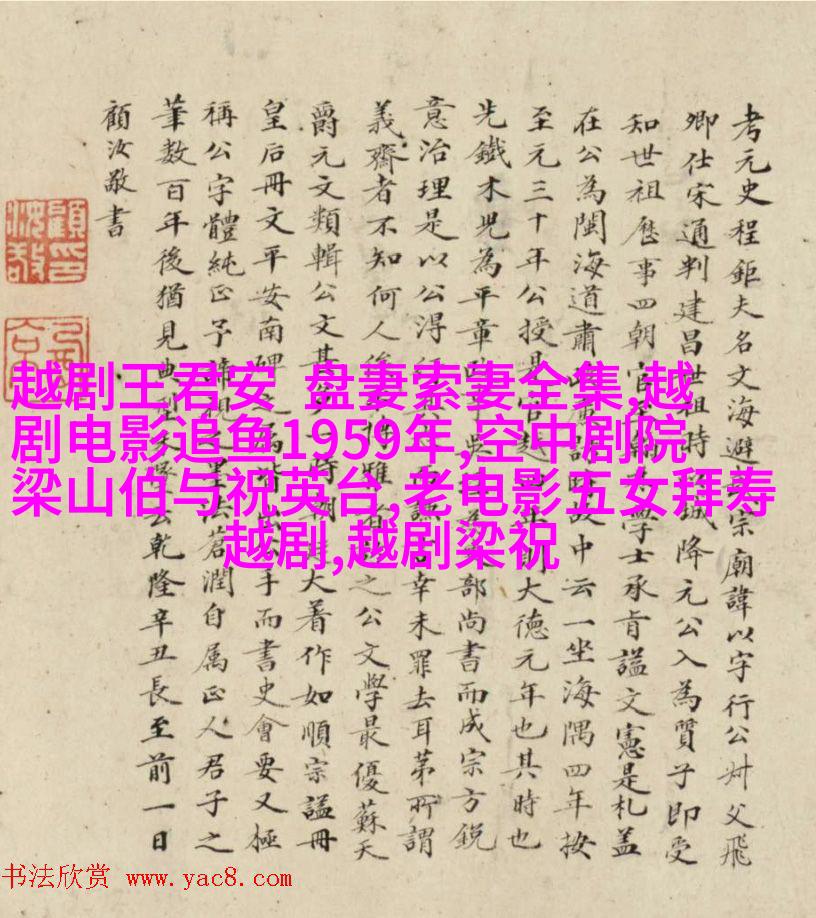 考元史程鉅夫名文海避宗廟諱以字行公叔父飛
卿仕宋通判建昌世祖時以城降元公入為質子即受
知世祖歷事四朝官學士承旨諡文憲是札蓋
在公為閩海道肅中云一坐海隅四年按
至元三十年公授是官越則大德元年也其時也
先鐵木兒為平章部尚書而成宗方銳
意治理是以公得幸未罪去耳苐所謂
義齋者不知何人博雅之公文學最優蘇天
爵元文類輯公文甚大著作如順宗諡冊
皇后冊文平安南碑之屬手而書史會要又極
稱公字體純正予諦視之墨法蒼潤自属正人君子之
筆數百年後猶見典型乾隆辛丑長至前一日
顧汝敬書
越剧王君安 盘妻索妻全集,越
剧电影追鱼1959年,空中剧院
梁山伯与祝英台,老电影五女拜寿
越剧,越剧梁祝
书法欣赏 www.yac8.com